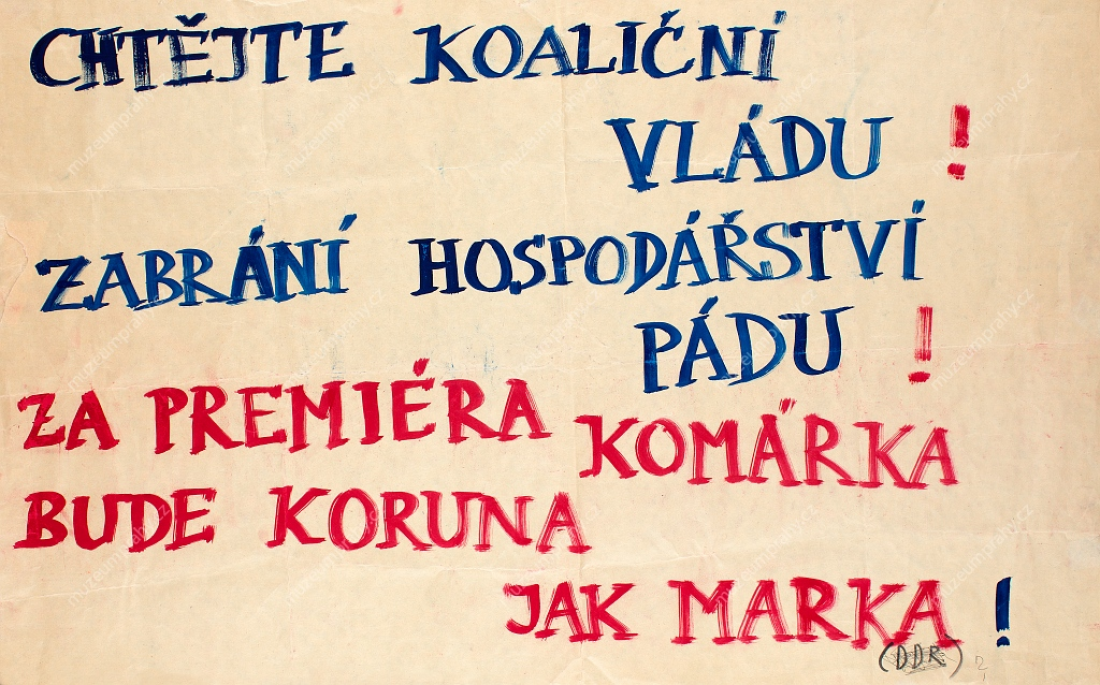 CHTĚJTE KOALIČNÍ
VLÁDU !
ZABRÁNÍ HOSPODÁŘSTVÍ
PÁDU !
ZA PREMIÉRA KOMÁRKA
BUDE KORUNA
JAK MARKA !
(DDR)